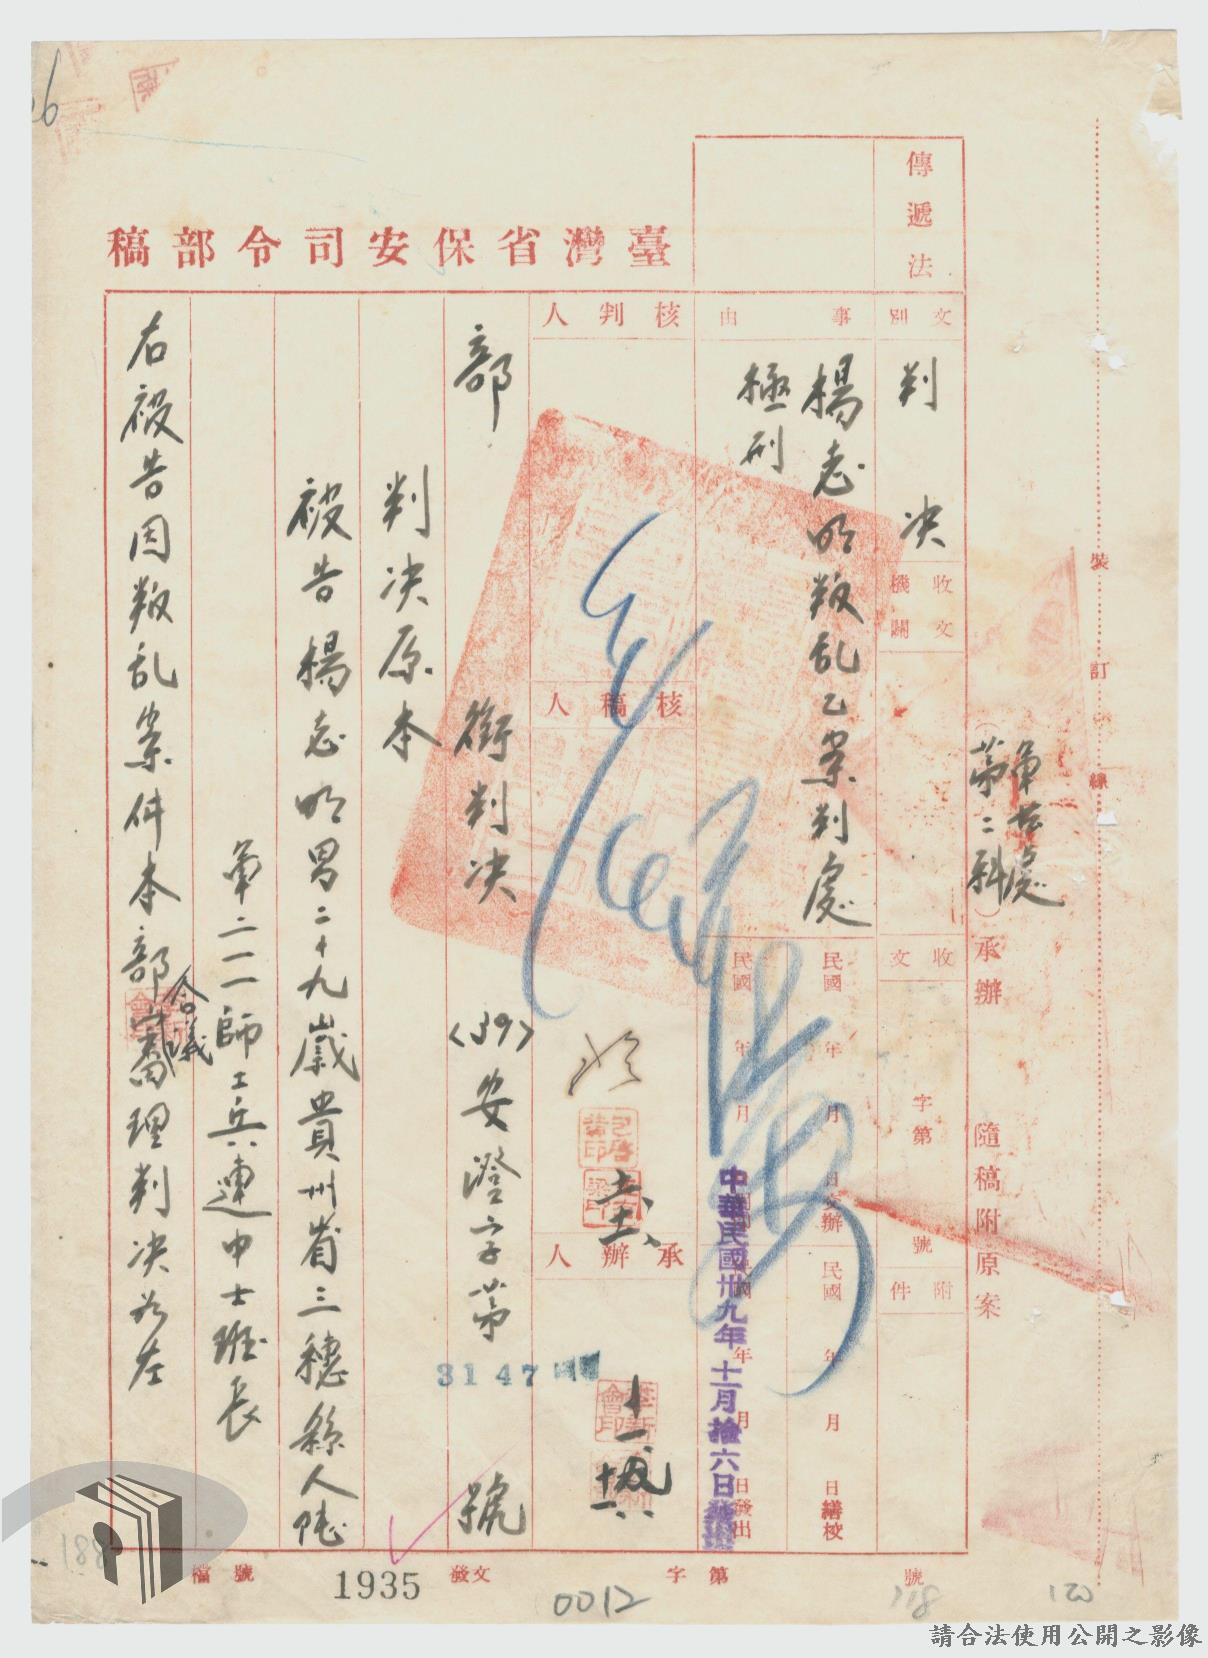 臺灣省保安司令部稿
軍法處
（第二科）承辦
隨稿附原案
裝訂線
傳遞法
文別
判決
收文機關
收文
字第
號
附件
事由
楊志明叛乱乙案判處
極刑
民國 年 月 日交辦
民國 年 月 日繕校
民國 年 月 日發出
中華民國卅九年十一月拾六日發出
核判人
核稿人
承辦人
部銜判決
<39>安澄字第
3147
號
判决原本
被告楊志明男二十九歲貴州省三穗縣人陸
軍二一一師工兵連中士班長
右被告因叛乱案件本部合議審理判决如左
檔號
1935
發文
字第
號
0012
118
120
188
請合法使用公開之影像